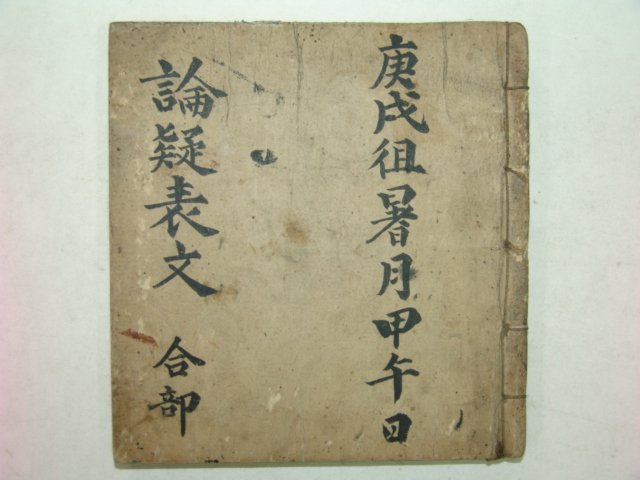 庚戌徂暑月甲午日
論疑表文 合部